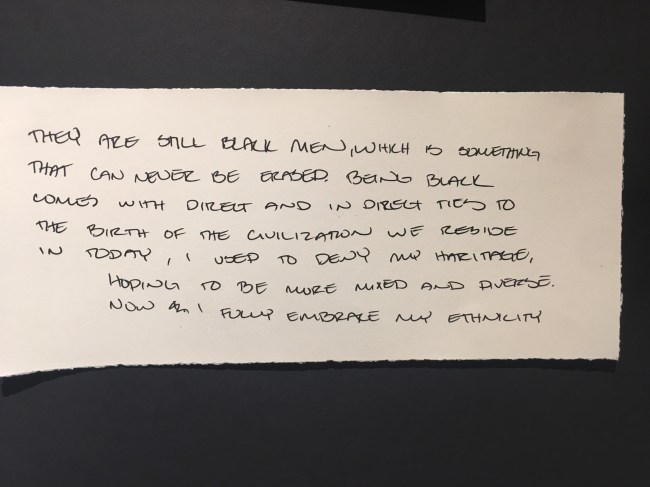 THEY ARE STILL BLACK MEN, WHICH IS SOMETHING
THAT CAN NEVER BE ERASED. BEING BLACK
COMES WITH DIRECT AND IN DIRECT TIES TO
THE BIRTH OF THE CIVILIZATION WE RESIDE
IN TODAY, I USED TO DENY MY HARITAGE,
HOPING TO BE MORE MIXED AND DIVERSE.
NOW I FULLY EMBRACE MY ETHNICITY